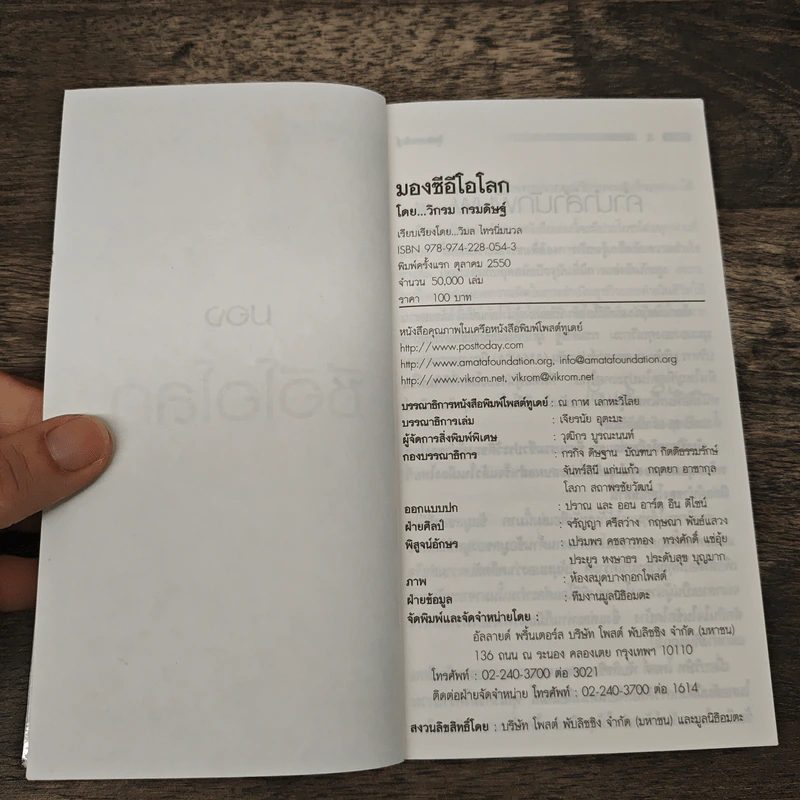 มองซีอีโอโลก
โดย...วิกรม กรมดิษฐ์
เรียบเรียงโดย...วิมล ไทรนิ่มนวล
ISBN 978-974-228-054-3
พิมพ์ครั้งแรก ตุลาคม 2550
จำนวน 50,000 เล่ม
ราคา 100 บาท
หนังสือคุณภาพในเครือหนังสือพิมพ์โพสต์ทูเดย์
http://www.posttoday.com
http://www.amatafoundation.org, info@amatafoundation.org
http://www.vikrom.net, vikrom@vikrom.net
บรรณาธิการหนังสือพิมพ์โพสต์ทูเดย์ : ณ กาฬ เลาหะวิไลย
บรรณาธิการเล่ม : เจียรนัย อุตะมะ
ผู้จัดการสิ่งพิมพ์พิเศษ : วุฒิกร บูรณะนนท์
กองบรรณาธิการ : กรกิจ ดิษฐาน มัณฑนา กิตติธรรมรักษ์
จันทร์สินี แก่นแก้ว กฤตยา อาชากุล
โสภา สถาพรชัยวัฒน์
ออกแบบปก : ปราณ และ ออน อาร์ต อิน ดีไซน์
ฝ่ายศิลป์ : จรัญญา ศรีสว่าง กฤษณา พันธ์แสวง
พิสูจน์อักษร : เปรมพร คชสารทอง ทรงศักดิ์ แซ่อุ้ย
ประยูร หงษาธร ประดับสุข บุญมาก
ภาพ : ห้องสมุดบางกอกโพสต์
ฝ่ายข้อมูล : ทีมงานมูลนิธิอมตะ
จัดพิมพ์และจัดจำหน่ายโดย :
อัลลายด์ พริ้นเตอร์ส บริษัท โพสต์ พับลิชชิง จำกัด (มหาชน)
136 ถนน ณ ระนอง คลองเตย กรุงเทพฯ 10110
โทรศัพท์ : 02-240-3700 ต่อ 3021
ติดต่อฝ่ายจัดจำหน่าย โทรศัพท์ : 02-240-3700 ต่อ 1614
สงวนลิขสิทธิ์โดย : บริษัท โพสต์ พับลิชชิง จำกัด (มหาชน) และมูลนิธิอมตะ